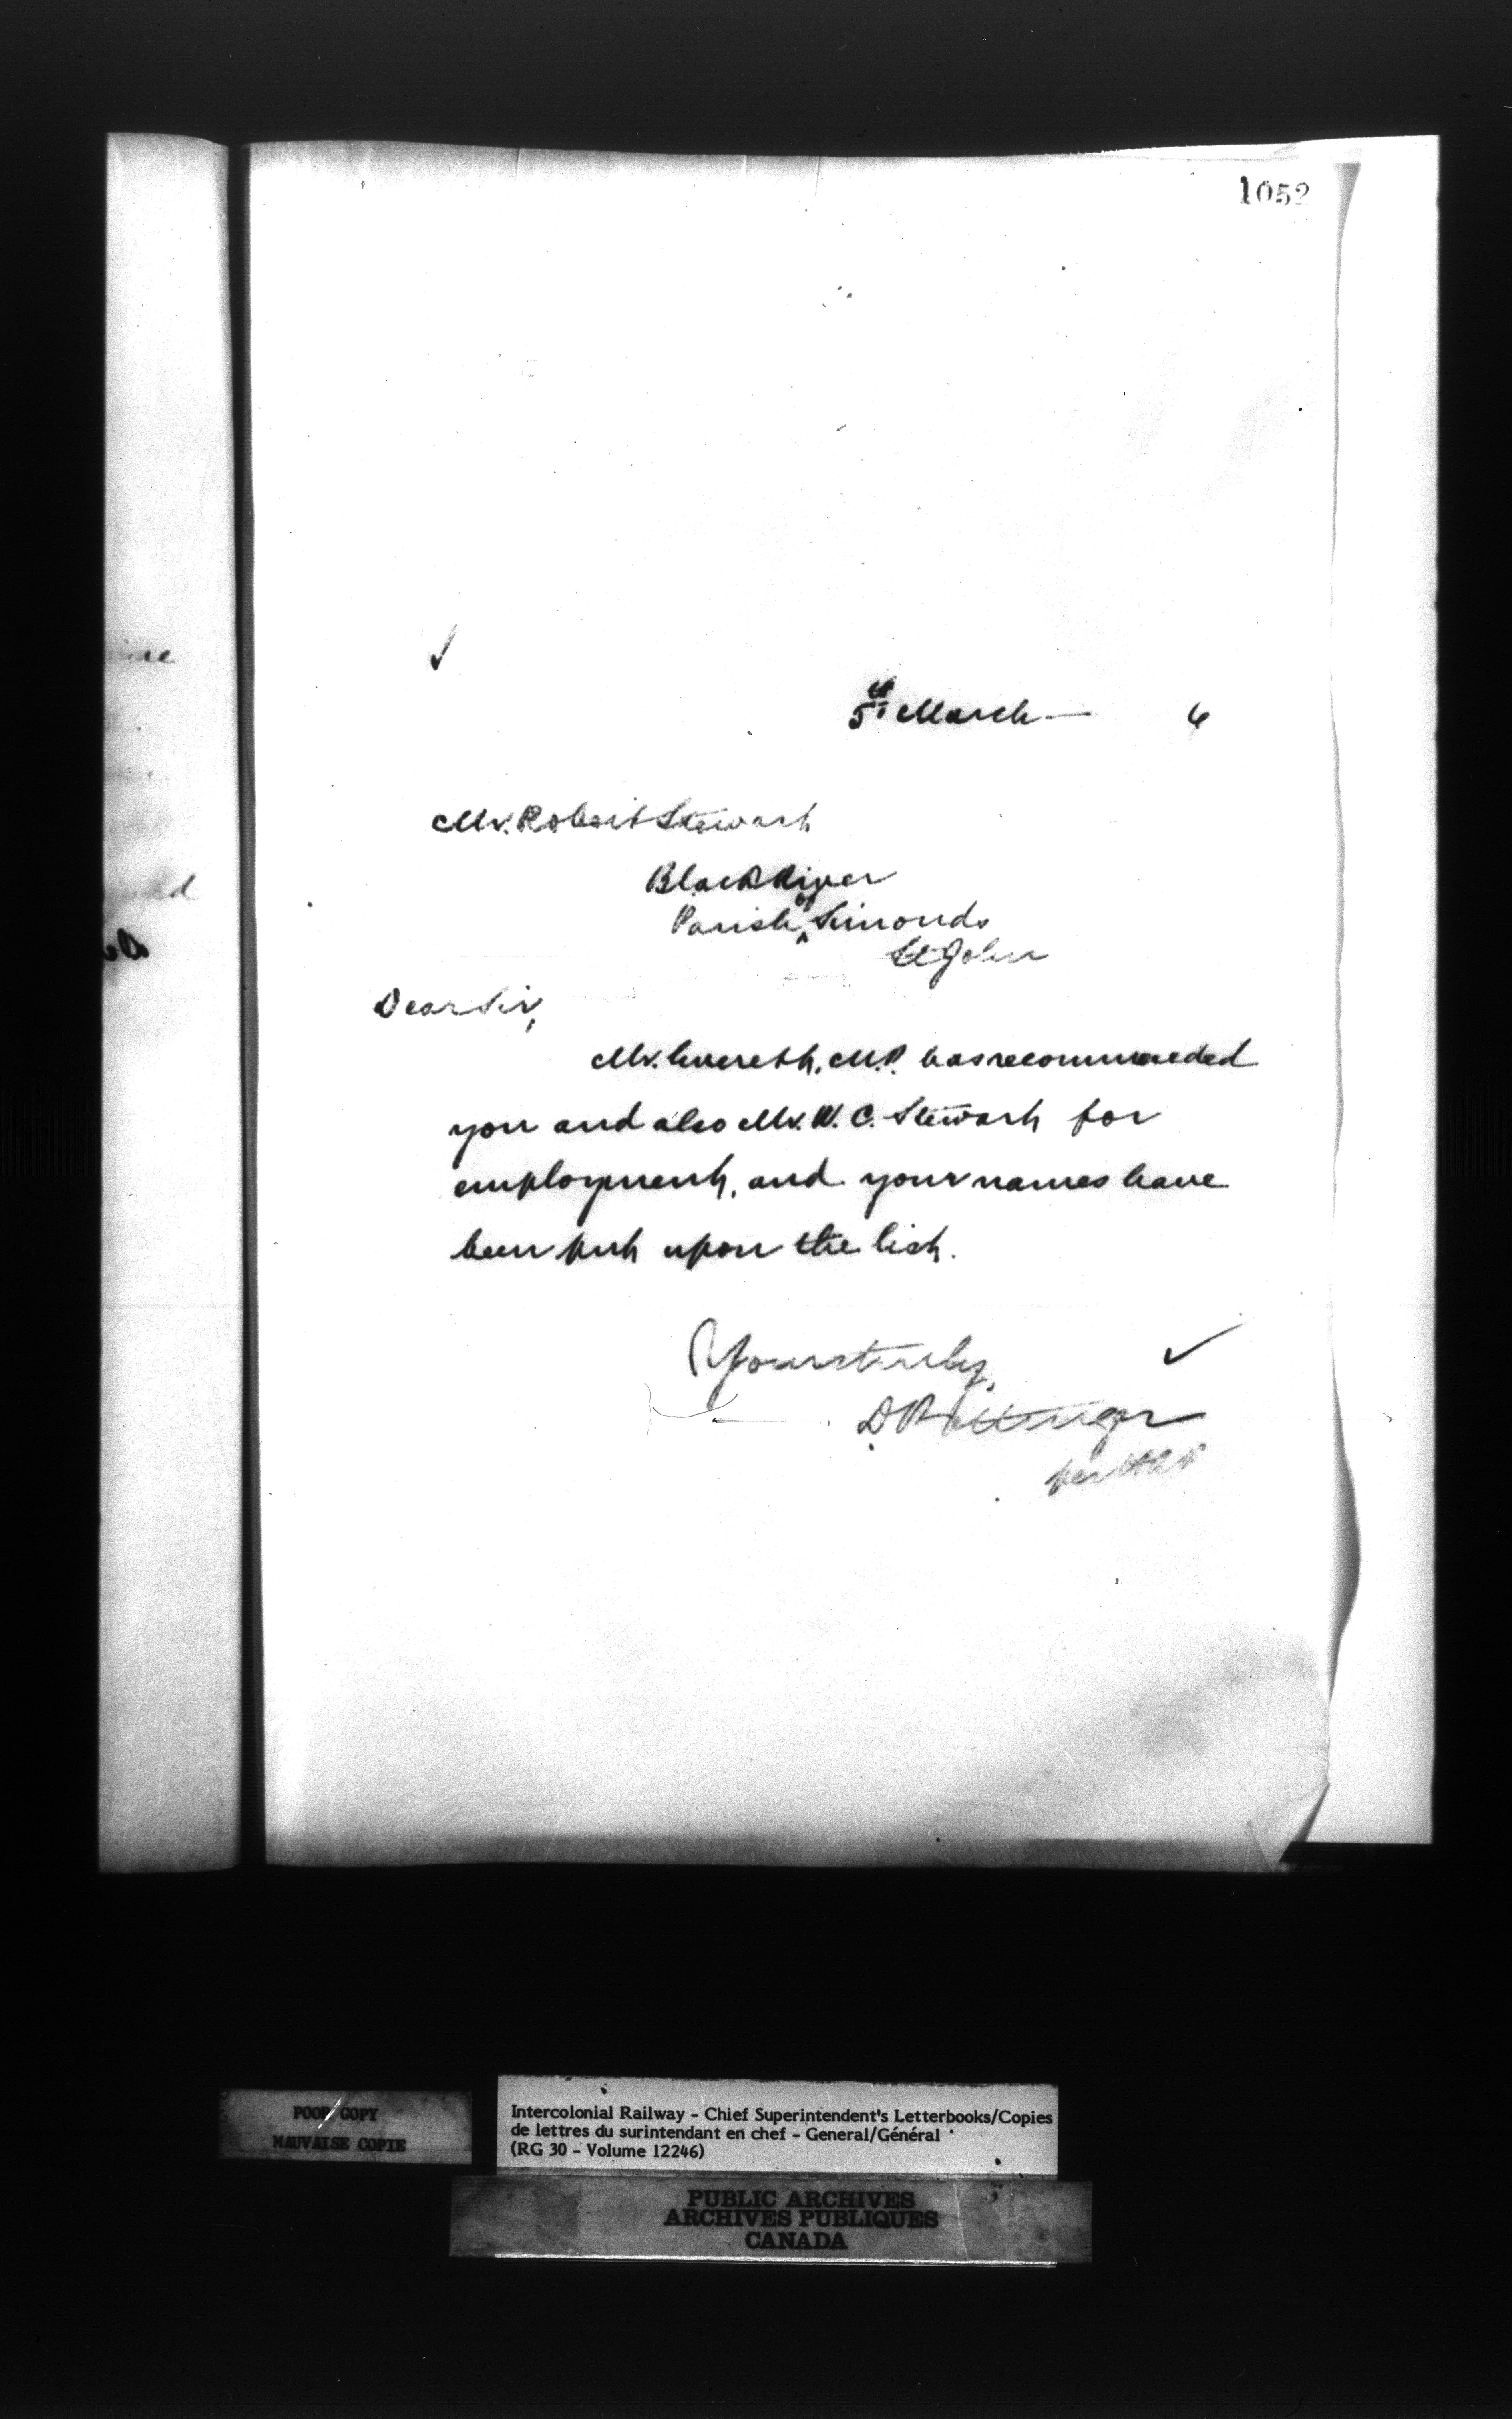 1052
5th March — 6
Mr. Robert Stewart
Black River
Parish of Simonds
St John
Dear Sir,
Mr. Everett, M.P. has recommended
you and also Mr. W. C. Stewart for
employment, and your names have
been put upon the list.
Yours truly,
D Pottinger
per
POOR COPY
MAUVAISE COPIE
Intercolonial Railway - Chief Superintendent's Letterbooks/Copies
de lettres du surintendant en chef - General/Général
(RG 30 - Volume 12246)
PUBLIC ARCHIVES
ARCHIVES PUBLIQUES
CANADA